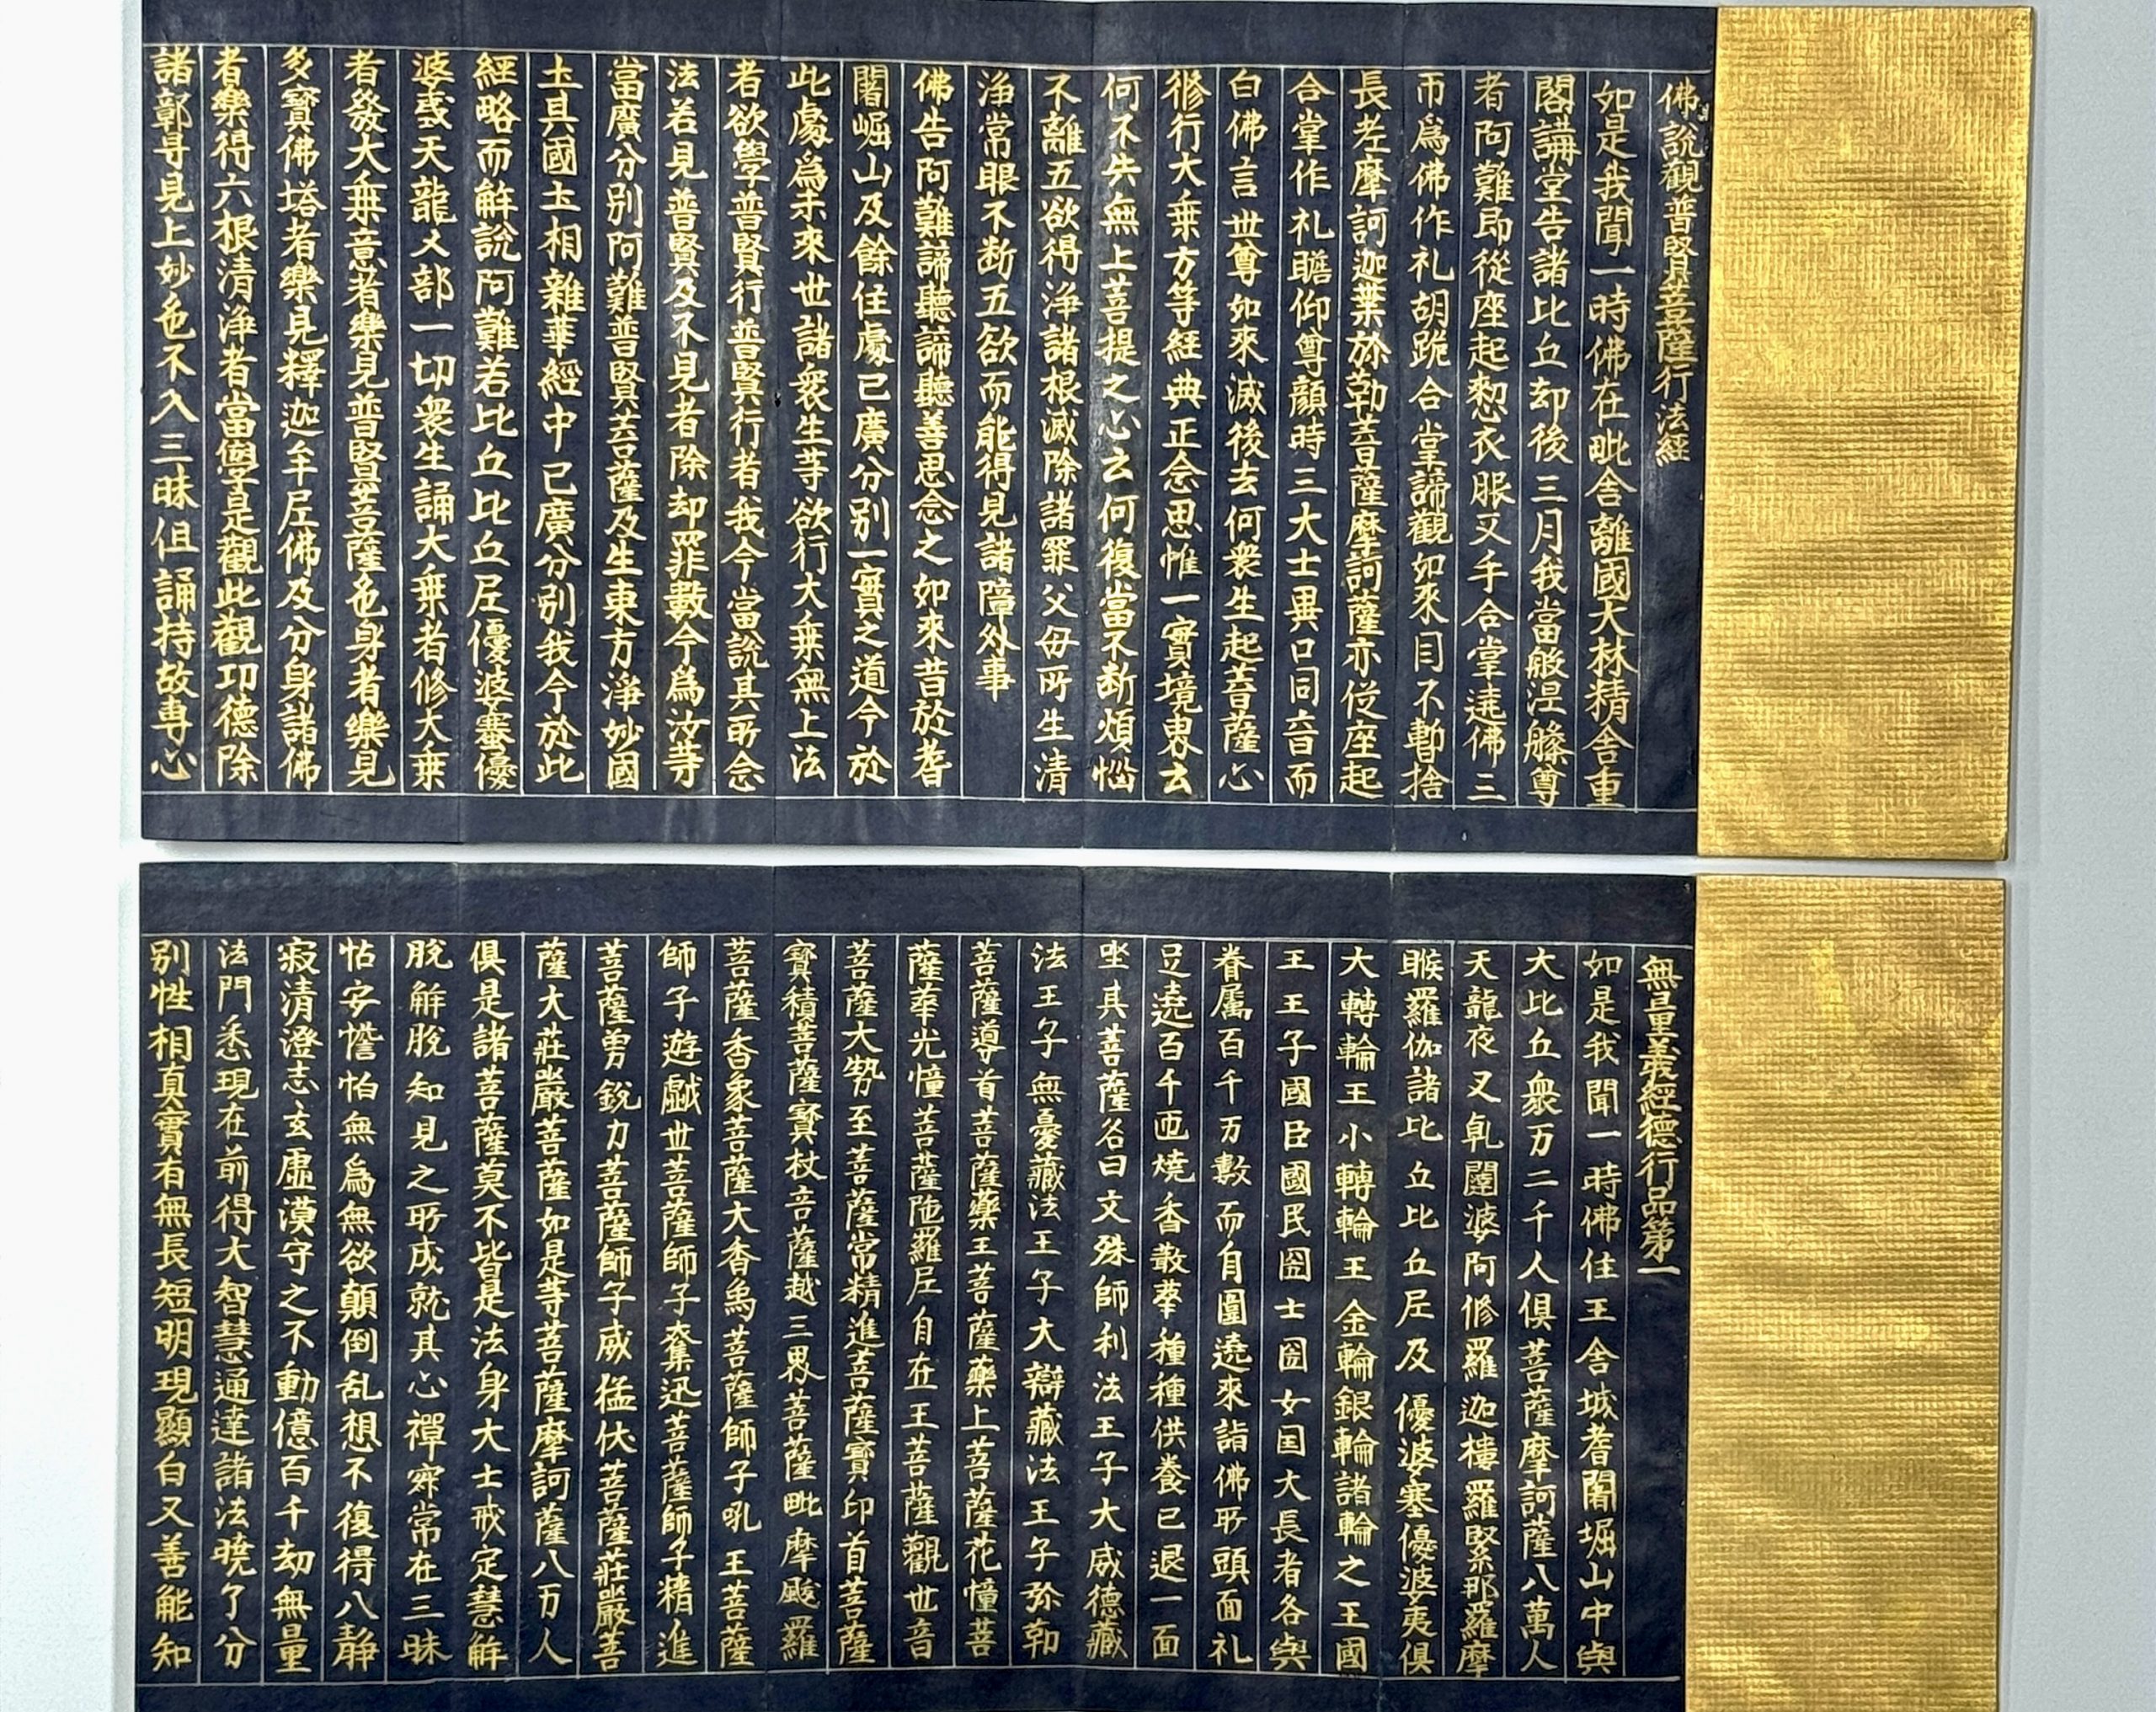 佛說觀普賢菩薩行法經
如是我聞一時佛在毗舍離國大林精舍重
閣講堂告諸比丘却後三月我當般涅槃尊
者阿難即從座起整衣服叉手合掌遶佛三
帀爲佛作礼胡跪合掌諦觀如來目不暫捨
長老摩訶迦葉弥勒菩薩摩訶薩亦從座起
合掌作礼瞻仰尊顏時三大士異口同音而
白佛言世尊如來滅後去何衆生起菩薩心
修行大乗方等經典正念思惟一實境界云
何不失無上菩提之心云何復當不断煩惱
不離五欲得淨諸根滅除諸罪父母所生清
淨常眼不断五欲而能得見諸障外事
佛告阿難諦聽諦聽善思念之如來昔於耆
闍崛山及餘住處已廣分別一實之道今於
此處爲未來世諸衆生等欲行大乗無上法
者欲學普賢行普賢行者我今當說其所念
法若見普賢及不見者除却罪數今爲汝等
當廣分別阿難普賢菩薩及生東方淨妙國
土其國土相雜華經中已廣分別我今於此
經略而解說阿難若比丘比丘尼優婆塞優
婆夷天龍八部一切衆生誦大乗者修大乗
者發大乗意者樂見普賢菩薩色身者樂見
多寶佛塔者樂見釋迦牟尼佛及分身諸佛
者樂得六根清淨者當學是觀此觀功德除
諸鄣导見上妙色不入三昧但誦持故専心
無量義經德行品第一
如是我聞一時佛住王舍城耆闍堀山中與
大比丘衆万二千人俱菩薩摩訶薩八萬人
天龍夜叉乹闥婆阿修羅迦樓羅緊那羅摩
睺羅伽諸比丘比丘尼及優婆塞優婆夷俱
大轉輪王小轉輪王金輪銀輪諸輪之王國
王王子國臣國民囶士囶女国大長者各與
眷属百千万數而自圍遶來詣佛所頭面礼
足遶百千迊燒香散華種種供養已退一面
坐其菩薩名曰文殊師利法王子大威德藏
法王子無憂藏法王子大辯藏法王子弥勒
菩薩導首菩薩藥王菩薩藥上菩薩花憧菩
薩華光憧菩薩陁羅尼自在王菩薩觀世音
菩薩大勢至菩薩常精進菩薩寶印首菩薩
寶積菩薩寶杖菩薩越三界菩薩毗摩颰羅
菩薩香象菩薩大香象菩薩師子吼王菩薩
師子遊戲世菩薩師子奮迅菩薩師子精進
菩薩勇銳力菩薩師子威猛伏菩薩莊嚴菩
薩大莊嚴菩薩如是等菩薩摩訶薩八万人
俱是諸菩薩莫不皆是法身大士戒定慧解
脫解脫知見之所成就其心禪寂常在三昧
怗安憺怕無爲無欲顛倒乱想不復得八靜
寂清澄志玄虛漠守之不動億百千劫無量
法門悉現在前得大智慧通達諸法曉了分
別性相真實有無長短明現顯白又善能知